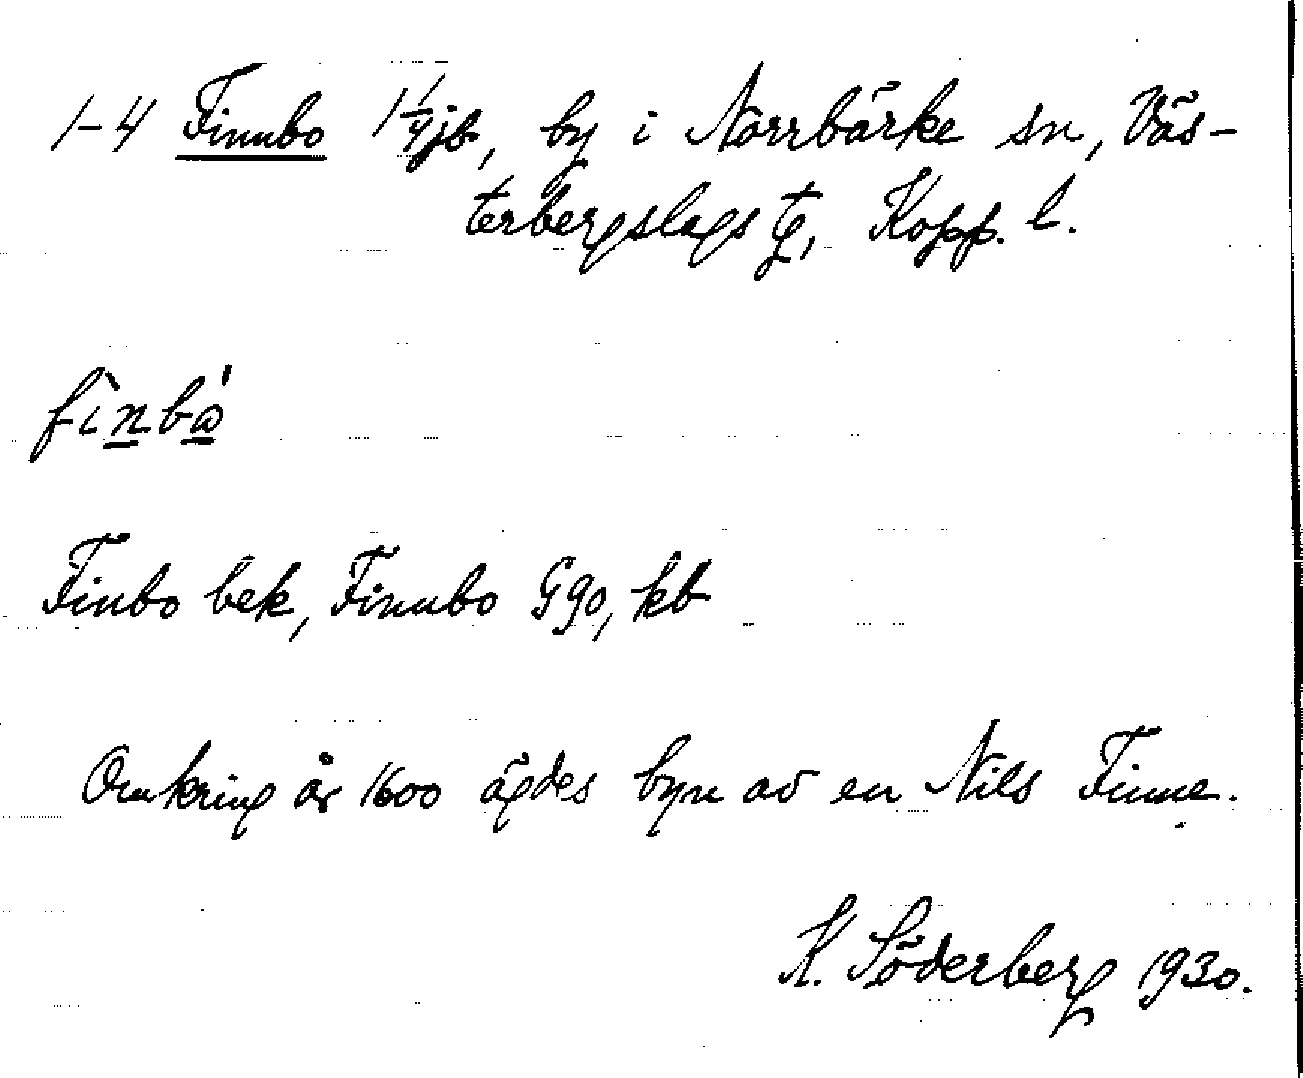 1-4 Finnbo 1 1/4 jb, by i Norrbärke sn, Väs-
terbergslags tg, Kopp. l.
fìnbà̍
Finbo bek, Finnbo Ggo, kb
Omkring år 1600 ägdes byn av en Nils Finne.
K. Söderberg 1930.